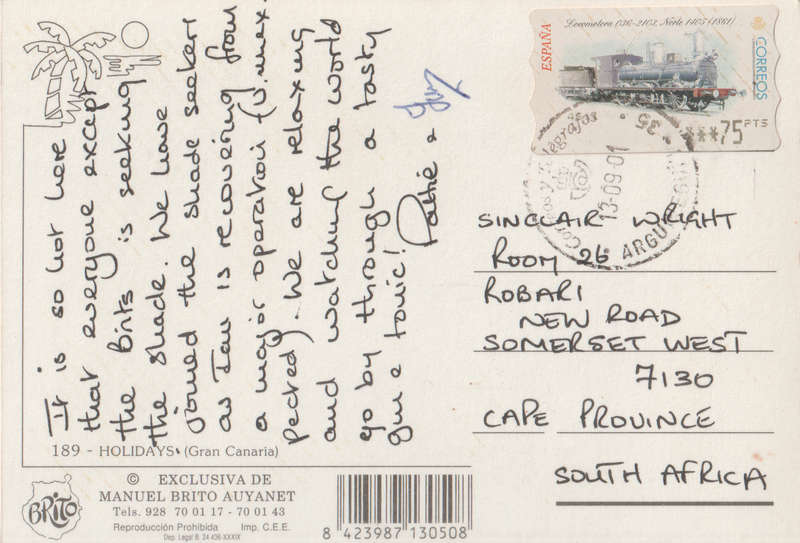 It is so hot here
that everyone except
the Brits is seeking
the shade. We have
joined the shade seekers
as Ian is recovering from
a major operation (Unex-
pected). We are relaxing
and watching the world
go by through a tasty
gin & tonic!
&
189 - HOLIDAYS. (Gran Canaria)
BRITO
© EXCLUSIVA DE
MANUEL BRITO AUYANET
Tels. 928 70 01 17 - 70 01 43
Reproducción Prohibida Imp. C.E.E.
Dep. Legal B. 24 436-XXXIX
8 423987 130508
Locomotora 030-2103. Norte 1405 (1881)
ESPAÑA
CORREOS
***75 PTS
Correos y Telégrafos
35
13-09-01
SINCLAIR WRIGHT
ROOM 26
ROBARI
NEW ROAD
SOMERSET WEST
7130
CAPE PROVINCE
SOUTH AFRICA